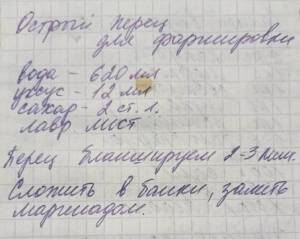 Острый перец
для фаршировки
вода - 620 мл
уксус - 12 мл
сахар - 2 ст. л.
лавр лист
Перец бланшируем 2-3 мин.
Сложить в банки, залить
маринадом.